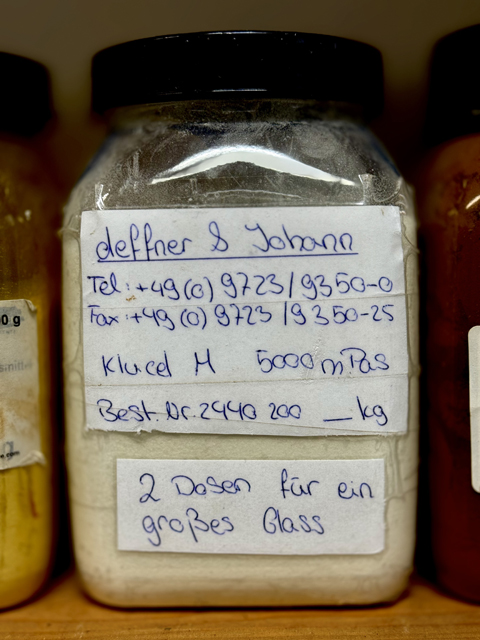 deffner & Johann
Tel.: +49(0) 9723/9350-0
Fax: +49(0) 9723/9350-25
Klucel M 5000 mPas
Best. Nr. 2440 200 __ kg
2 Dosen für ein
großes Glass
0 g